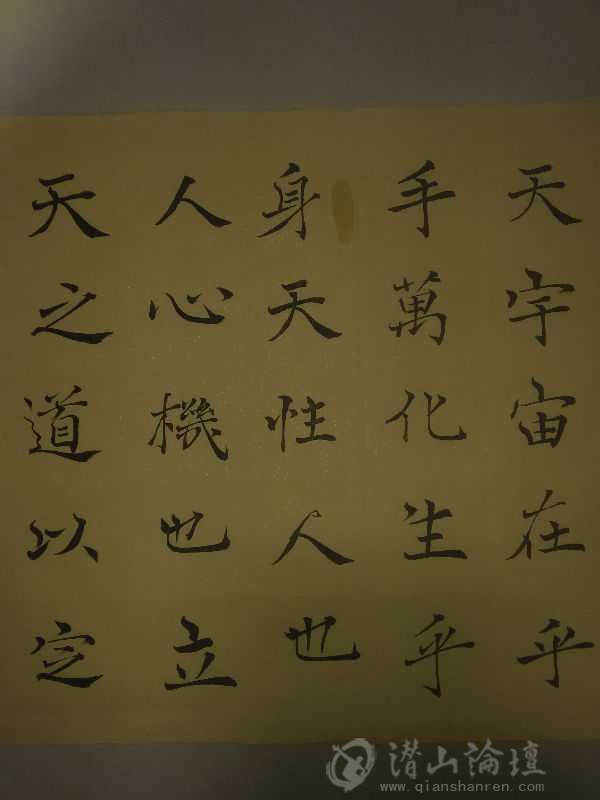 天宇宙在乎
手萬化生乎
身天性人也
人心機也立
天之道以定
潜山論壇
www.qianshanren.com